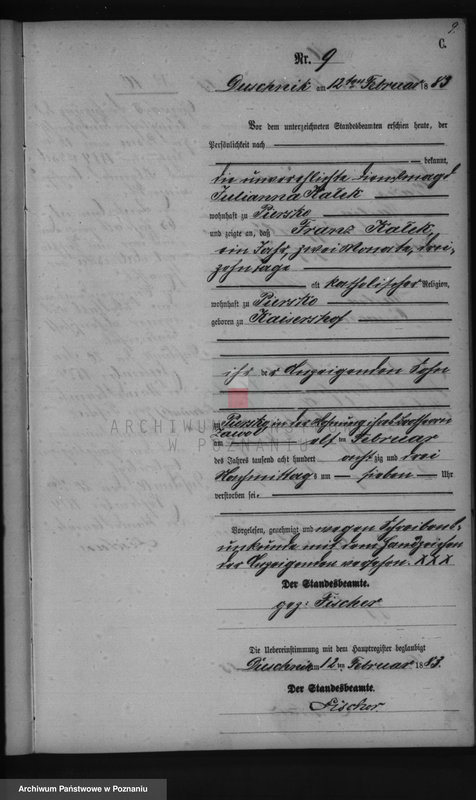 9.
C.
Nr. 9
Duschnik am 12ten Februar 1883
Vor dem unterzeichneten Standesbeamten erschien heute, der
Persönlichkeit nach
bekannt,
die unverehlichte Dienstmagd
Julianna Kałek
wohnhaft zu Piersko
und zeigte an, daß Franz Kałek,
ein Jahr, zwei Monate, drei-
zehn Tage
alt, katholischer Religion,
wohnhaft zu Piersko
geboren zu Kaisershof
ihr der Anzeigenden Sohn
zu Piersko in der Wohnung
am elf ten Februar
des Jahres tausend acht hundert achtzig und drei
Nachmittags um sieben Uhr
verstorben sei.
Vorgelesen, genehmigt und wegen Schreibens-
unkunde mit dem Handzeichen
der Anzeigenden versehen. XXX
Der Standesbeamte.
gez: Fischer
Die Uebereinstimmung mit dem Hauptregister beglaubigt
Duschnik am 12ten Februar 1883.
Der Standesbeamte.
Fischer
ARCHIWUM
W POZNANIU
Archiwum Państwowe w Poznaniu